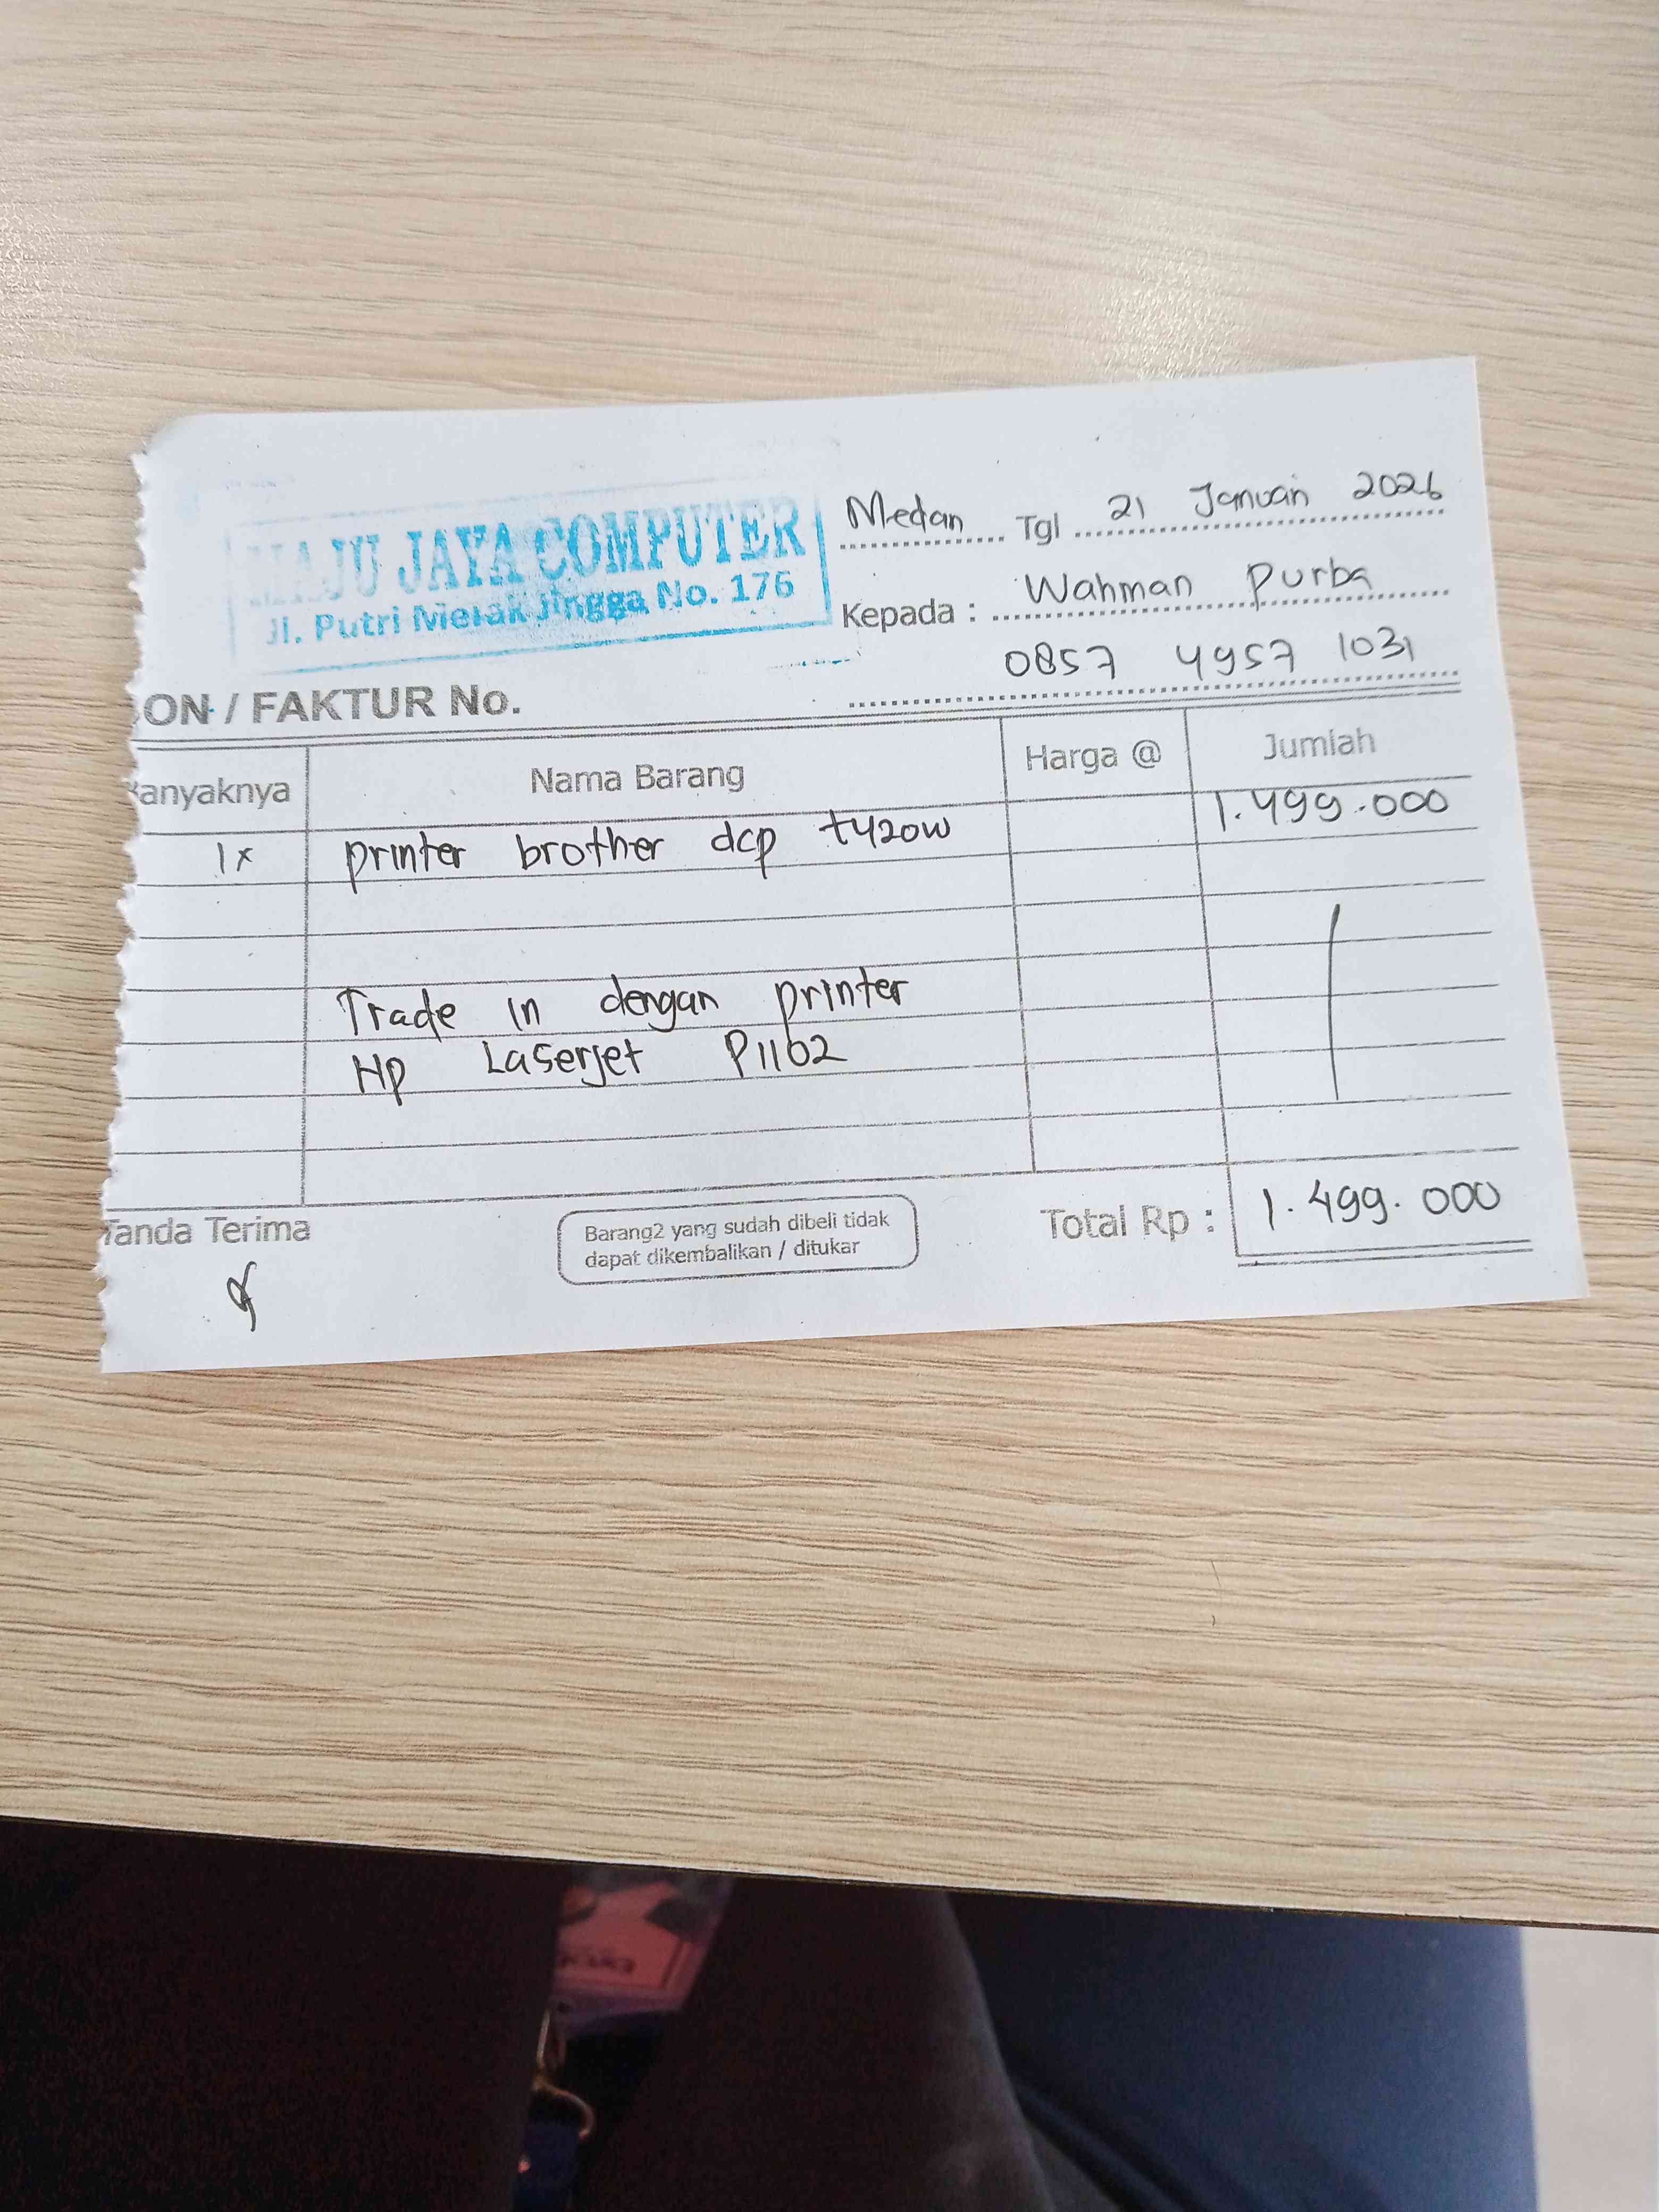 MAJU JAYA COMPUTER
Jl. Putri Merak Jingga No. 176
Medan Tgl 21 Januari 2026
Kepada : Wahman Purba
0857 4957 1031
ON / FAKTUR No.
anyaknya Nama Barang Harga @ Jumlah
1x printer brother dcp t420w 1.499.000
Trade in dengan printer
HP Laserjet P1102
Tanda Terima
Barang2 yang sudah dibeli tidak
dapat dikembalikan / ditukar
Total Rp : 1.499.000